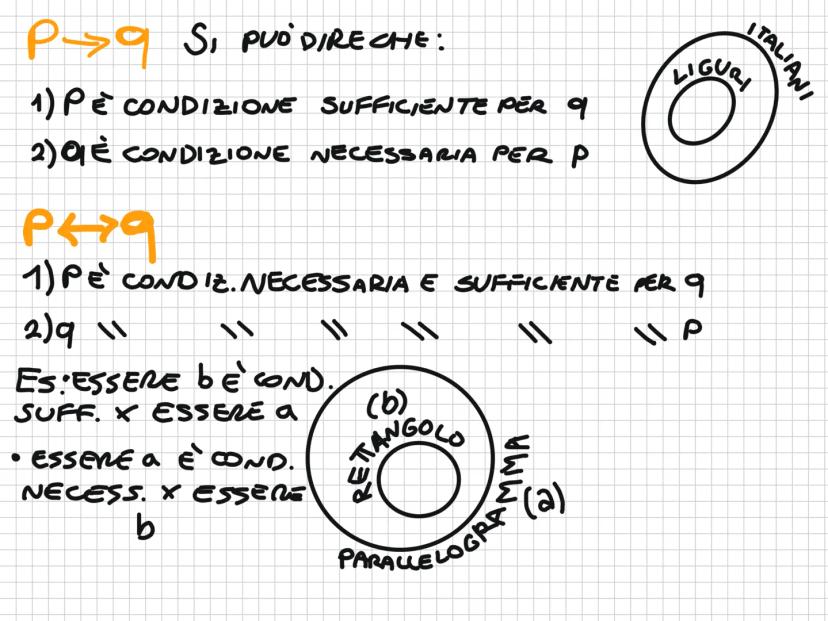 P→q SI PUÒ DIRE CHE:
1) P È CONDIZIONE SUFFICIENTE PER q
2) q È CONDIZIONE NECESSARIA PER P
LIGURI
ITALIANI
P↔q
1) P È CONDIZ. NECESSARIA E SUFFICIENTE PER q
2) q \\ \\ \\ \\ \\ \\ P
ES: ESSERE b È COND.
SUFF. X ESSERE a
• ESSERE a È COND.
NECESS. X ESSERE
b
(b)
RETTANGOLO
PARALLELOGRAMMA
(a)